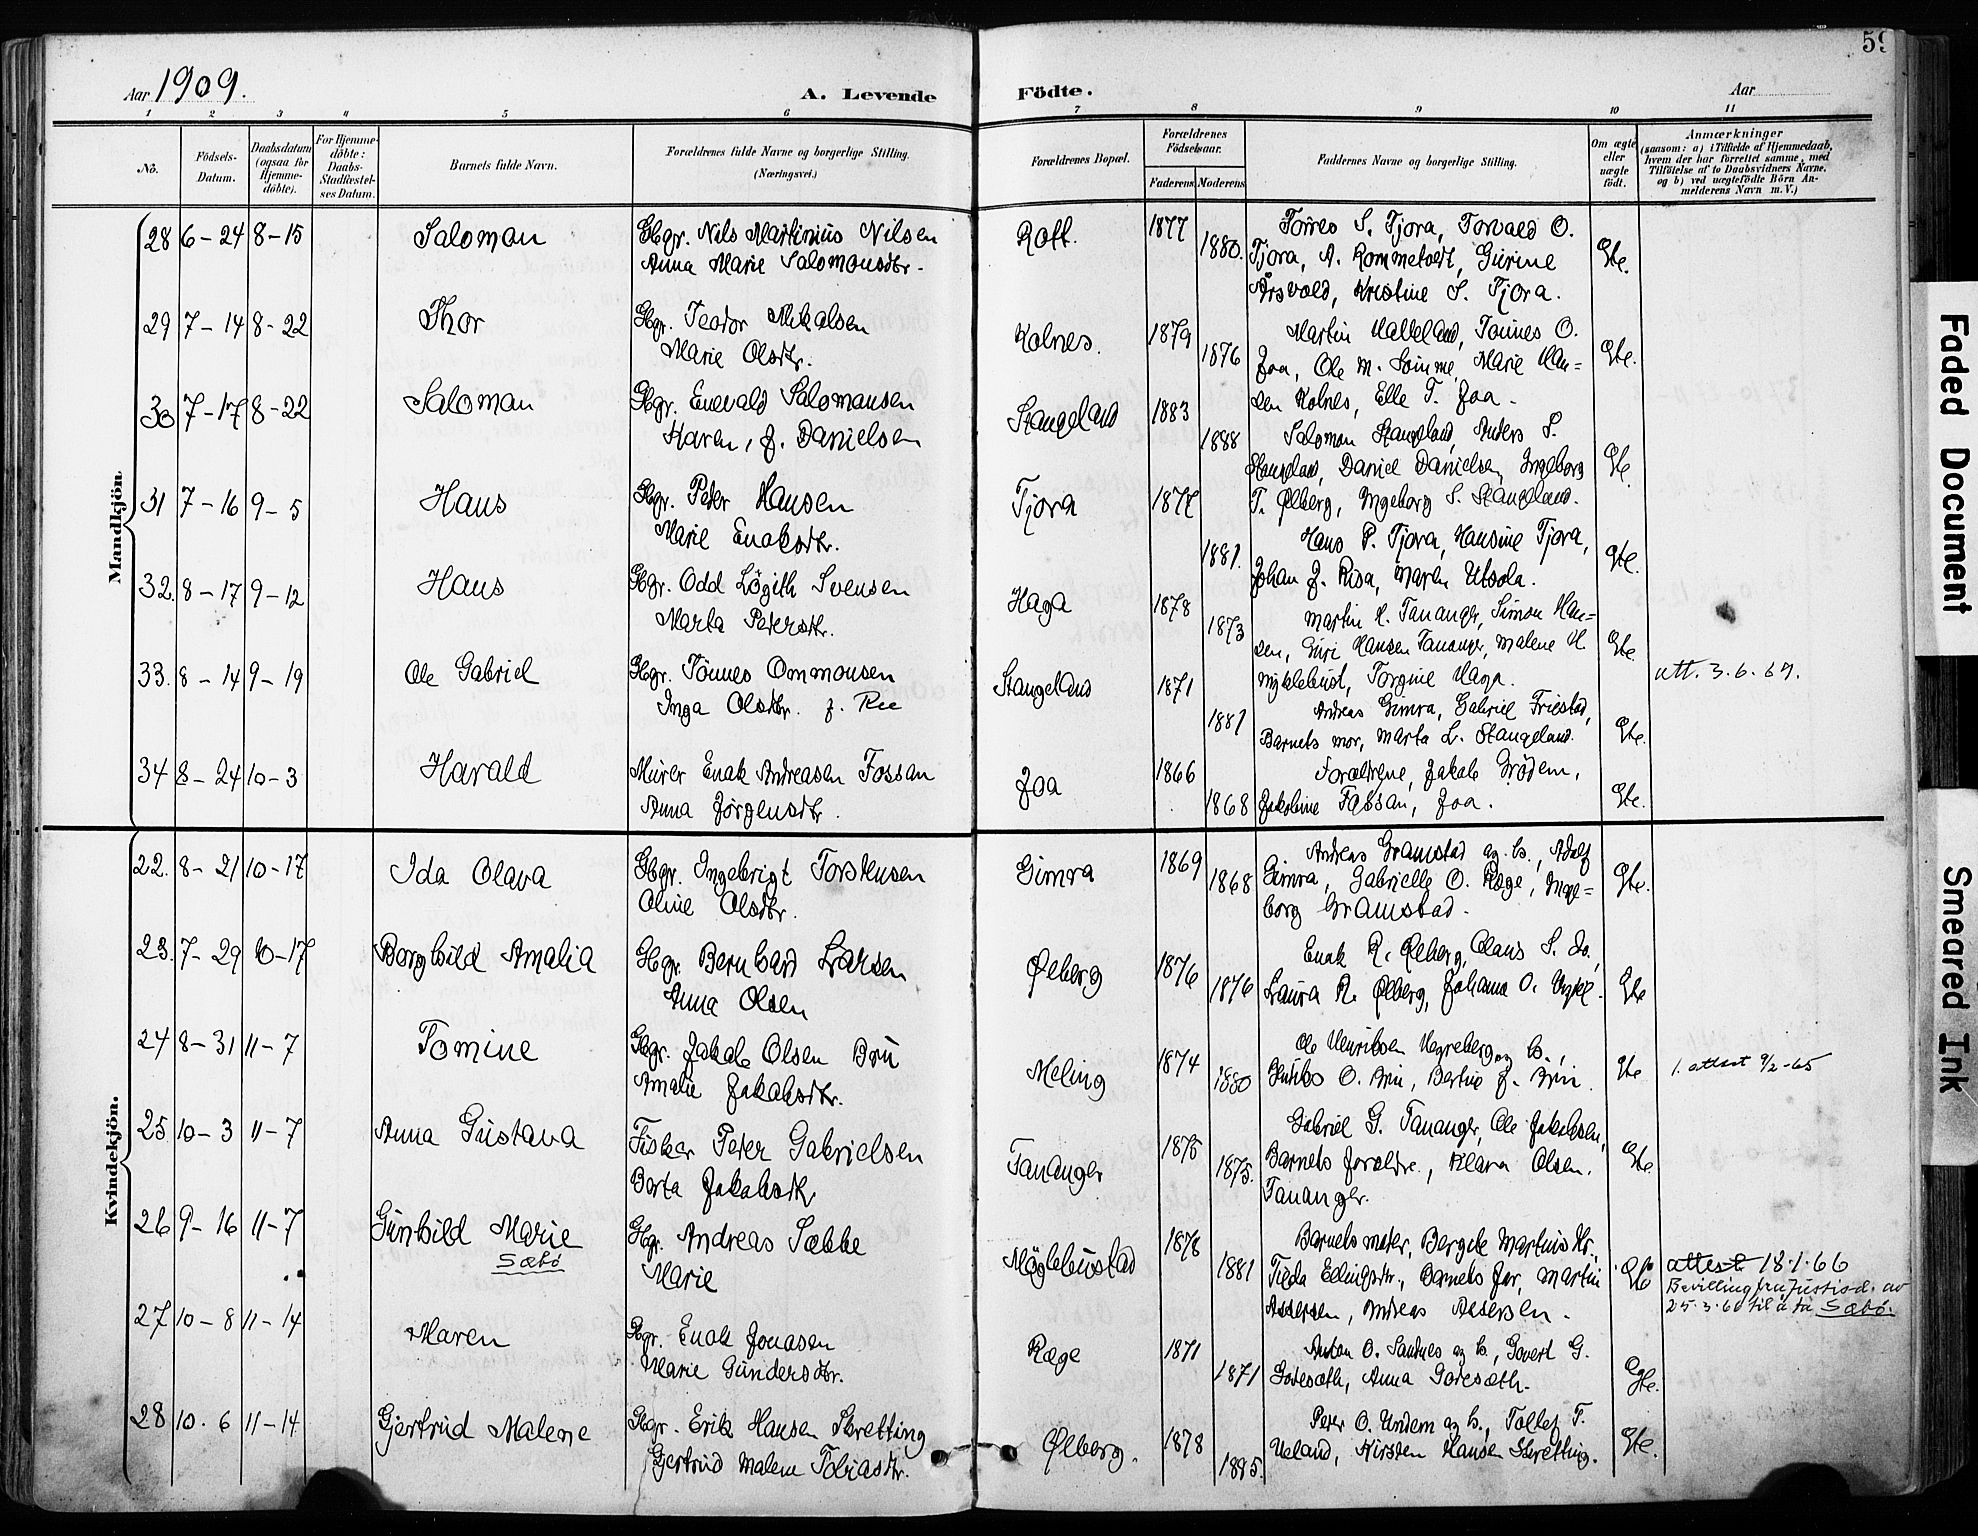 59
Aar 1909.
A. Levende
Födte.
Aar
1 2 3 4 5 6 7 8 9 10 11
No.
Födsels-Datum.
Daabsdatum (ogsaa for Hjemme-döbte).
For Hjemme-döbte: Daabs-Stadfæstel-ses Datum.
Barnets fulde Navn.
Forældrenes fulde Navne og borgerlige Stilling.
(Næringsvei.)
Forældrenes Bopæl.
Forældrenes Födselsaar.
Faderens Moderens
Faddernes Navne og borgerlige Stilling.
Om ægte eller uægte födt.
Anmærkninger
(saasom: a) i Tilfælde af Hjemmedaab,
hvem der har forrettet samme, med
Tilföielse af to Daabsvidners Navne,
og b) ved uægtefödte Börn An-
melderens Navn m. V.)
Mandkjön.
28 6-24 8-15 Saloman Gbgr. Nils Martinius Nilsen Rott. 1877
Anna Marie Salomonsdtr. 1880.
Tjora, Torvald O.
Tjora, Gurine
Kristine S. Tjora. Gte.
29 7-14 8-22 Thor Gbgr. Teodor Mikalsen Kolnes. 1879
Marie Olsdtr. 1876
Martin Halleland, Tønnes O.
Joa, Ole M. Sømme, Marie Han=
sen Kolnes, Elle T. Joa. Gte.
30 7-17 8-22 Saloman Gbgr. Enevald Salomonsen Stangeland 1883
Karen, f. Danielsen 1888
Saloman Stangeland, Anders S.
Stangeland, Daniel Danielsen, Ingeborg
T. Ølberg, Ingeborg S. Stangeland. Gte.
31 7-16 9-5 Hans Gbgr. Peter Hansen Tjora 1877
Marie Enoksdtr. 1881.
Hans P. Tjora, Hansine Tjora,
Johan J. Risa, Maren Utsola. Gte.
32. 8-17 9-12 Hans Gbgr. Odd Svensen Haga 1878
Marta Petersdtr. 1873
Martin H. Tananger, Simon Han=
sen, Guri Hansen Tananger, Malene H.
Myklebust, Torgine Haga. Gte.
33. 8-14 9-19 Ole Gabriel Gbgr. Tönnes Ommonsen Stangeland 1871
Inga Olsdtr. f. Ree 1881
Andreas Gimra, Gabriel Friestad,
Barnets mor, Marta L. Stangeland. Gte.
att. 3.6.67.
34 8-24 10-3 Harald Murer Enok Andreasen Fossan Joa 1866
Anna Jörgensdtr. 1868
Forældrene, Jakob Grödem,
Jakobine Fossan, Joa. Gte.
Kvindekjön.
22. 8-21 10-17 Ida Olava Gbgr. Ingebrigt Torstensen Gimra 1869
Oline Olsdtr. 1868
Andreas Gramstad og h., Adolf
Gimra, Gabrielle O. Røge, Inge=
borg Gramstad. Gte.
23. 7-29 10-17 Borghild Amalia Gbgr. Bernhard Larsen Ølberg 1876
Anna Olsen 1876
Enok R. Ølberg, Olaus S. do.,
Laura R. Ølberg, Johanna O. Gte
24 8-31 11-7 Tomine Gbgr. Jakob Olsen Bru Meling 1874
Amalie Jakobsdtr. 1880
Ole Henriksen Hagreberg og h.,
Henrik O. Bru, Bertine J. Bru. Gte
1. attest 9/2-65
25 10-3 11-7 Anna Gustava Fisker Peter Gabrielsen Tananger 1875
Berta Jakobsdtr. 1875.
Gabriel G. Tananger, Ole Jakobsen,
Barnets forældre, Klara Olsen.
Tananger. Gte.
26 9-16 11-7 Gunhild Marie Gbgr. Andreas Sæbbe Myglebustad 1878
Sæbø
Marie 1881
Barnets moter, Martin Kr.
Barnets far, Martin
Andreas Assersen. Gte
attest 18.1.66
Bevilling fra Justisd. av
25.3.60 til å ta Sæbø.
27 10-8 11-14 Maren Gbgr. Enok Jonasen Ræge 1871
Marie Gundersdtr. 1871
Anton O. Sandnes og h., Govert G.
Godesæth, Anna Godesæth. Gte.
28 10.6 11-14 Gjertrud Malene Gbgr. Erik Hansen Skretting Ølberg. 1878
Gjertrud Malene Tobiasdtr. 1885.
Peter O. Undem og h., Tollef T.
Ueland, Kirsten Hansen Skretting. Gte.
Faded Document
Smeared Ink